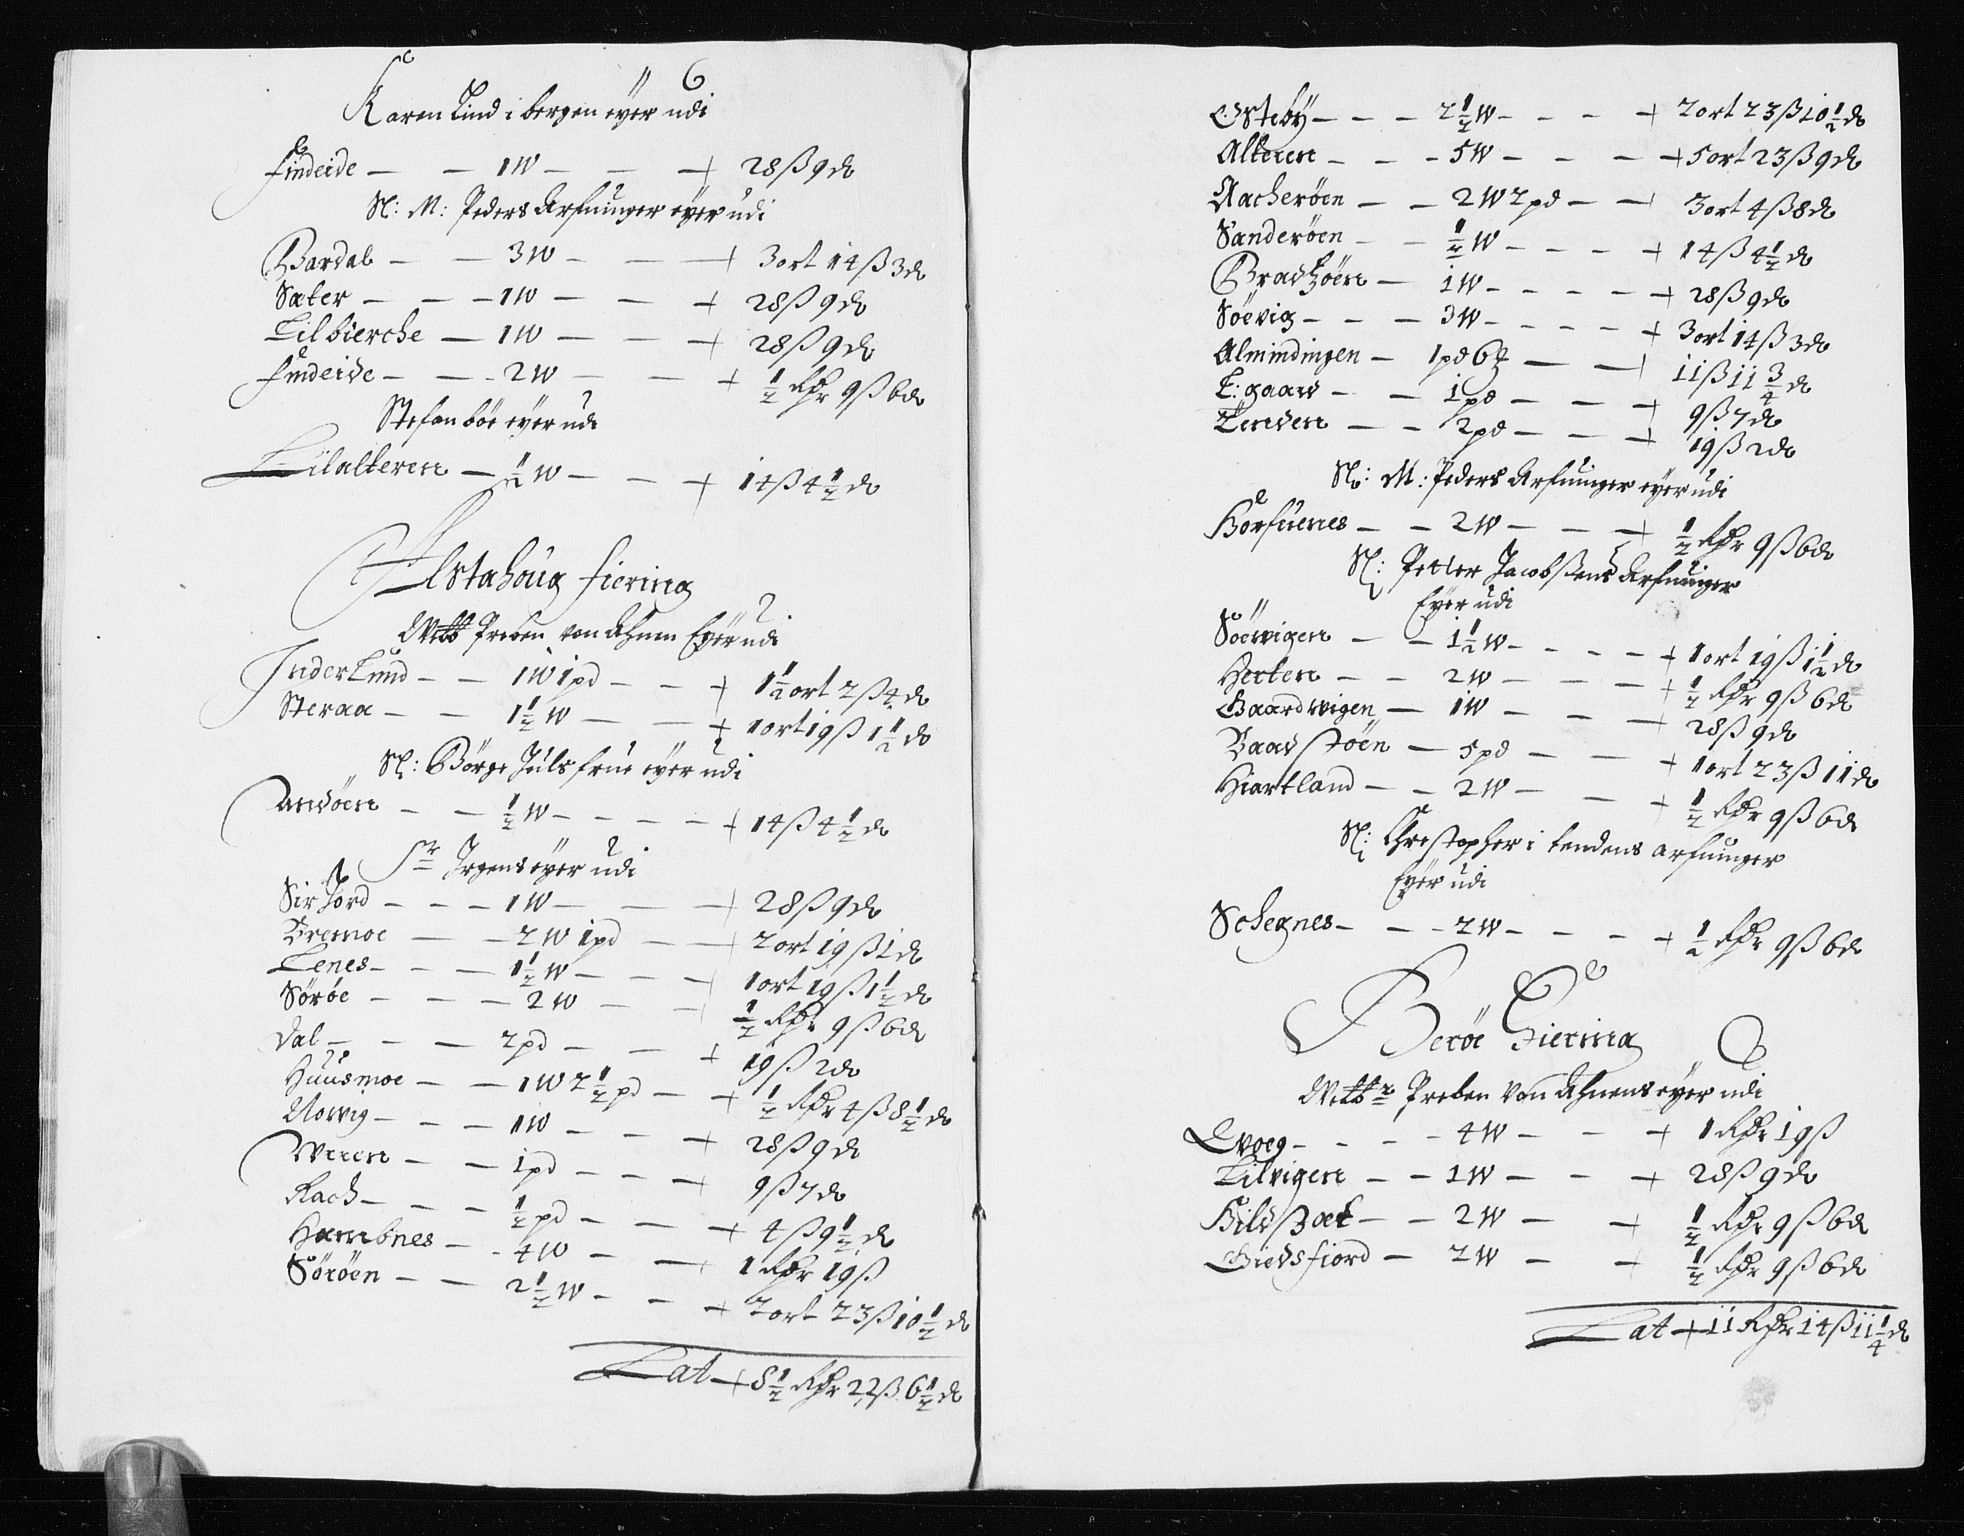 Karen Lind i bergen eyer udi
Findeide — — 1 W — — + 28 ß 9 d
Sl: M: Peders Arfuinger eyer udi
Bardal — — 3 W — — + 3 ort 14 ß 3 d
Sæter — — 1 W — — + 28 ß 9 d
Lilbierche — 1 W — — + 28 ß 9 d
Findeide — — 2 W — — + ½ Rdr 9 ß 6 d
Stefan böe eyer udi
Lilalteren — ½ W — — + 14 ß 4 ½ d
Alstahoug fiering
Welb Preben von Ahnen Eyer udi
Inderlund — — 1 W 1 pd — — + 1½ ort 2 ß 4 d
Steraa — — 1½ W — — + 1 ort 19 ß 1 ½ d
Sl: Börge Juls frue eyer udi
Andöen — — ½ W — — — + 14 ß 4 ½ d
Sr Irgens eyer udi
Sir Jord — — — 1 W — — + 28 ß 9 d
Bremoe — — 2 W 1 pd — — + 2 ort 19 ß 1 d
Lenes — — — 1½ W — — + 1 ort 19 ß 1 ½ d
Söröe — — — 2 W — — + ½ Rdr 9 ß 6 d
Dal — — — 2 pd — — + 19 ß 2 d
Huusmoe — — 1 W 2½ pd — — + ½ Rdr 4 ß 8 ½ d
Norvig — — — 1 W — — + 28 ß 9 d
Weren — — 1 pd — — — + 9 ß 7 d
Rach — — — ½ pd — — — + 4 ß 9 ½ d
Hambnes — — 4 W — — + 1 Rdr 19 ß
Söröen — — 2½ W — — + 2 ort 23 ß 10 ½ d
Lat + 8½ Rdr 22 ß 6 ½ d
Osteby — — — 2½ W — — — + 2 ort 23 ß 10 ½ d
Alteren — — — 5 W — — — + 5 ort 23 ß 9 d
Aacheröen — — 2 W 2 pd — — + 3 ort 4 ß 8 d
Sanderöen — — ½ W — — — + 14 ß 4 ½ d
Bradhöen — 1 W — — — — + 28 ß 9 d
Söevig — — — 3 W — — — — + 3 ort 14 ß 3 d
Almindingen — 1 pd 6 — — + 11 ß 11 ¾ d
L: gaard — — 1 pd — — — + 9 ß 7 d
Tenden — — 2 pd — — — + 19 ß 2 d
Sl: M: Peders Arfuinger eyer udi
Horfuenes — — 2 W — — + ½ Rdr 9 ß 6 d
Sl: Petter Jacobsens Arfuinger
Eyer udi
Söewigen — — 1½ W — — — — + 1 ort 19 ß 1 ½ d
Herten — — 2 W — — — + ½ Rdr 9 ß 6 d
Gaardwigen — 1 W — — — + 28 ß 9 d
Baadstöen — 5 pd — — — + 1 ort 23 ß 11 d
Hiartland — — 2 W — — — + ½ Rdr 9 ß 6 d
Sl: Christopher i tendens arfuinger
Eyer udi
Schegnes — — — 2 W — — — — + ½ Rdr 9 ß 6 d
Heröe Fiering
Welbr Preben von Ahnens eyer udi
— — — — 4 W — — + 1 Rdr 19 ß
Lilvigen — — 1 W — — + 28 ß 9 d
Hildsæt — — 2 W — + ½ Rdr 9 ß 6 d
Giedsfiord — 2 W — + ½ Rdr 9 ß 6 d
Lat + 11 Rdr 14 ß 11 ¼ d